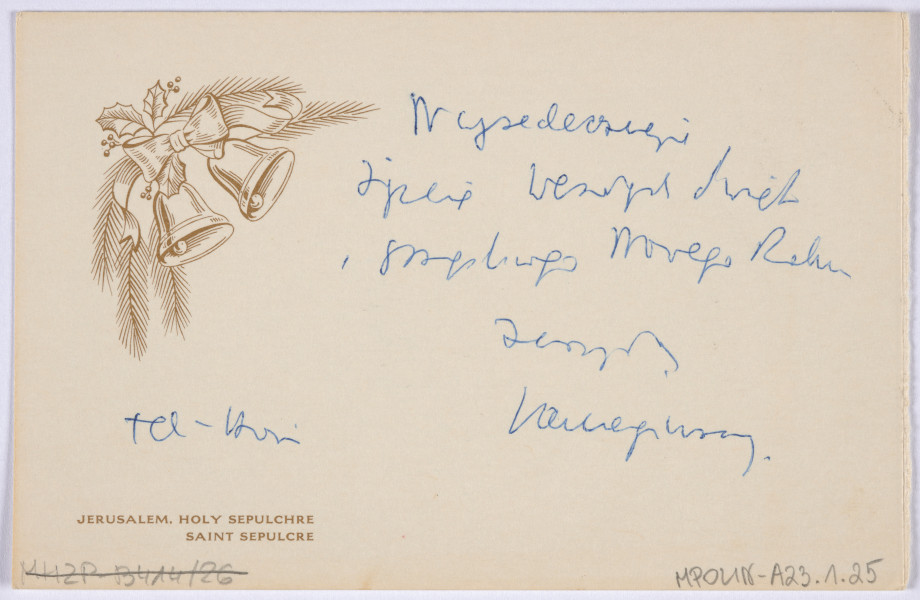 Najserdeczniejsze
życzenia Wesołych Świąt
i szczęśliwego Nowego Roku
JERUSALEM. HOLY SEPULCHRE
SAINT SEPULCRE
MHZP-B414/26
MPOLIN-A23.1.25